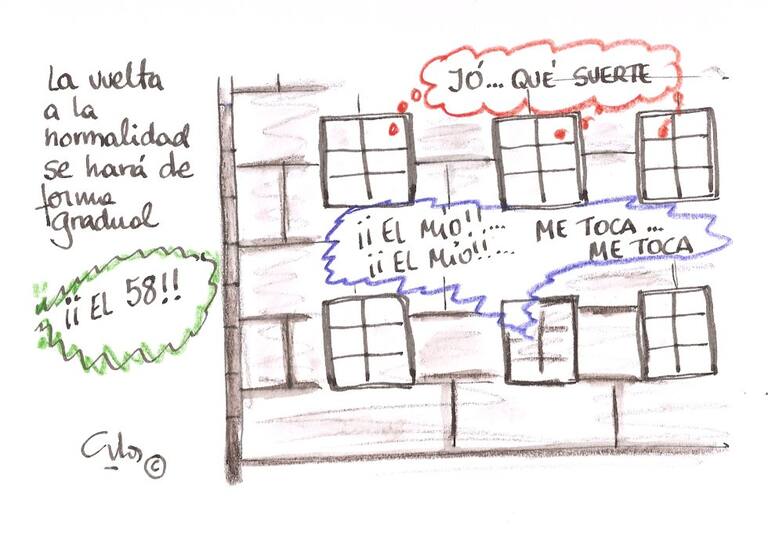 La vuelta
a la
normalidad
se hará de
forma
gradual
JÓ... QUÉ SUERTE
¡¡EL MÍO!!... ME TOCA...
¡¡EL MÍO!!... ME TOCA
¡¡EL 58!!
©